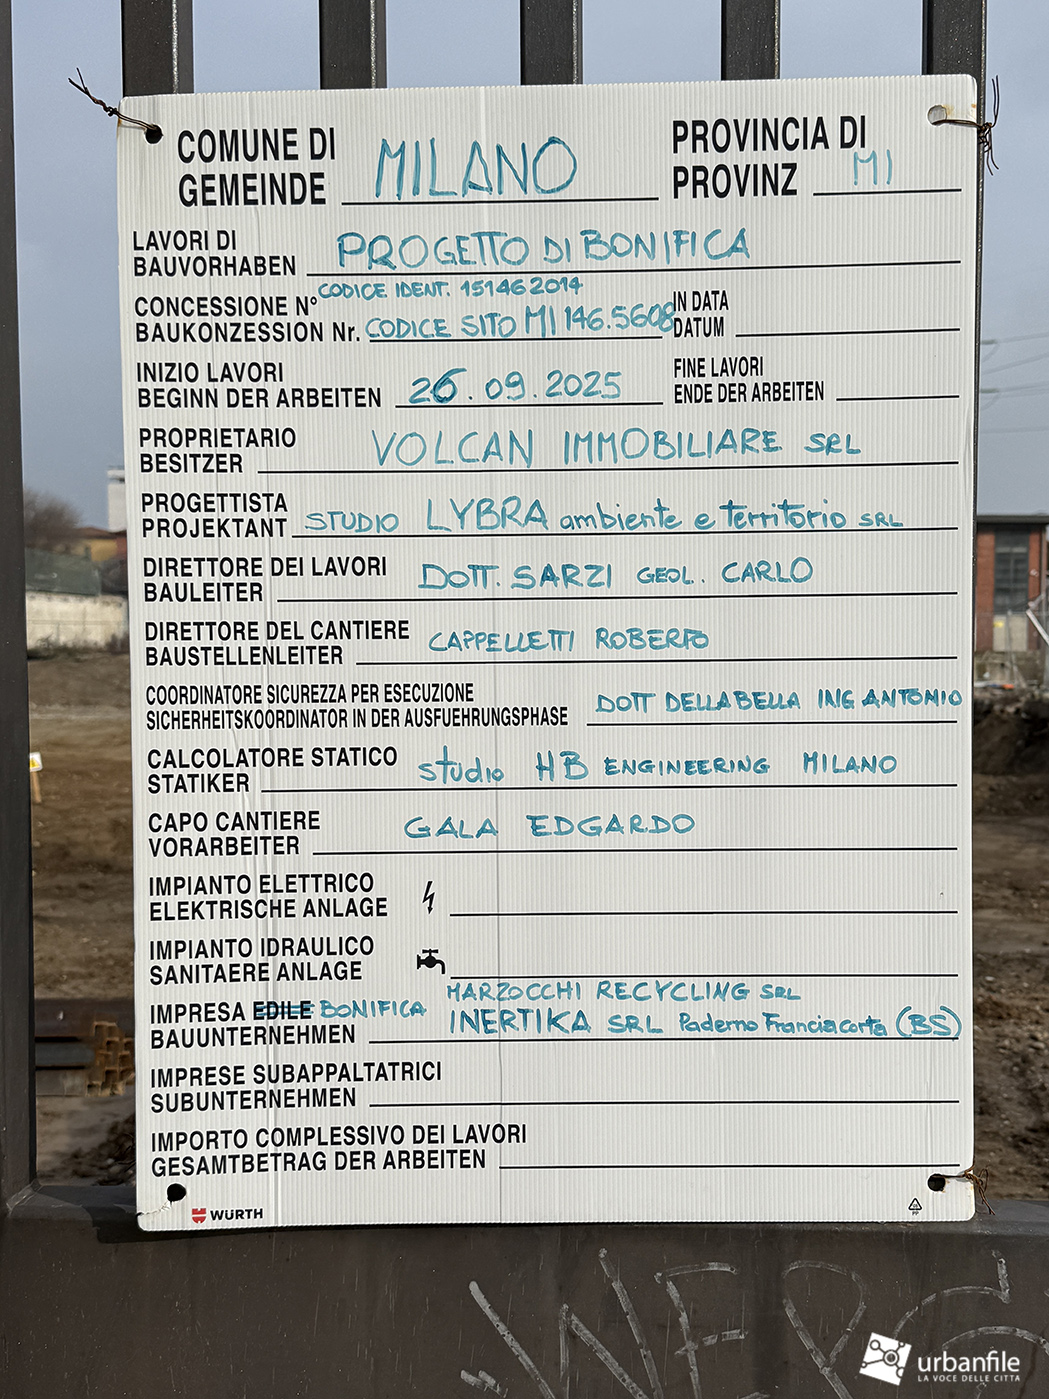 COMUNE DI
GEMEINDE MILANO
PROVINCIA DI
PROVINZ MI
LAVORI DI
BAUVORHABEN PROGETTO DI BONIFICA
CONCESSIONE N° CODICE IDENT. 151462014
BAUKONZESSION Nr. CODICE SITO MI 146.5608
IN DATA
DATUM
INIZIO LAVORI
BEGINN DER ARBEITEN 26.09.2025
FINE LAVORI
ENDE DER ARBEITEN
PROPRIETARIO
BESITZER VOLCAN IMMOBILIARE SRL
PROGETTISTA
PROJEKTANT STUDIO LYBRA ambiente e territorio SRL
DIRETTORE DEI LAVORI
BAULEITER DOTT. SARZI GEOL. CARLO
DIRETTORE DEL CANTIERE
BAUSTELLENLEITER CAPPELLETTI ROBERTO
COORDINATORE SICUREZZA PER ESECUZIONE
SICHERHEITSKOORDINATOR IN DER AUSFUEHRUNGSPHASE DOTT DELLABELLA ING ANTONIO
CALCOLATORE STATICO
STATIKER studio HB ENGINEERING MILANO
CAPO CANTIERE
VORARBEITER GALA EDGARDO
IMPIANTO ELETTRICO
ELEKTRISCHE ANLAGE
IMPIANTO IDRAULICO
SANITAERE ANLAGE
IMPRESA EDILE BONIFICA MARZOCCHI RECYCLING SRL
BAUUNTERNEHMEN INERTIKA SRL Paderno Franciacorta (BS)
IMPRESE SUBAPPALTATRICI
SUBUNTERNEHMEN
IMPORTO COMPLESSIVO DEI LAVORI
GESAMTBETRAG DER ARBEITEN
WÜRTH
PP
urbanfile
LA VOCE DELLE CITTÀ